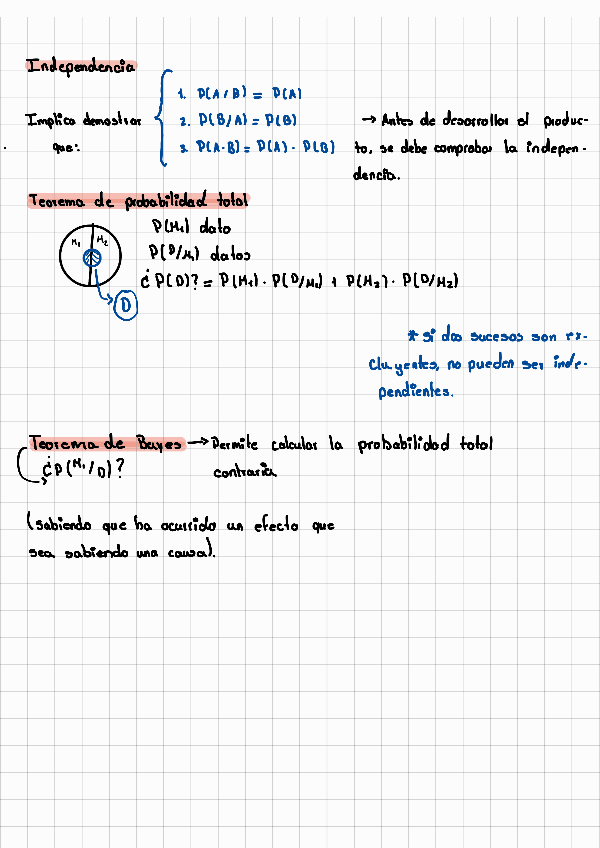 Independencia
Implica demostrar que:
1. P(A/B) = P(A)
2. P(B/A) = P(B)
3. P(A·B) = P(A) · P(B)
→ Antes de desarrollar el produc-
to, se debe comprobar la indepen-
dencia.
Teorema de probabilidad total
M₁ M₂
D
P(M₁) dato
P(D/M₁) datos
¿P(D)? = P(M₁) · P(D/M₁) + P(M₂) · P(D/M₂)
* si dos sucesos son ex-
cluyentes, no pueden ser inde-
pendientes.
Teorema de Bayes → Permite calcular la probabilidad total
¿P(M₁/D)? contraria
(sabiendo que ha ocurrido un efecto que
sea sabiendo una causa).